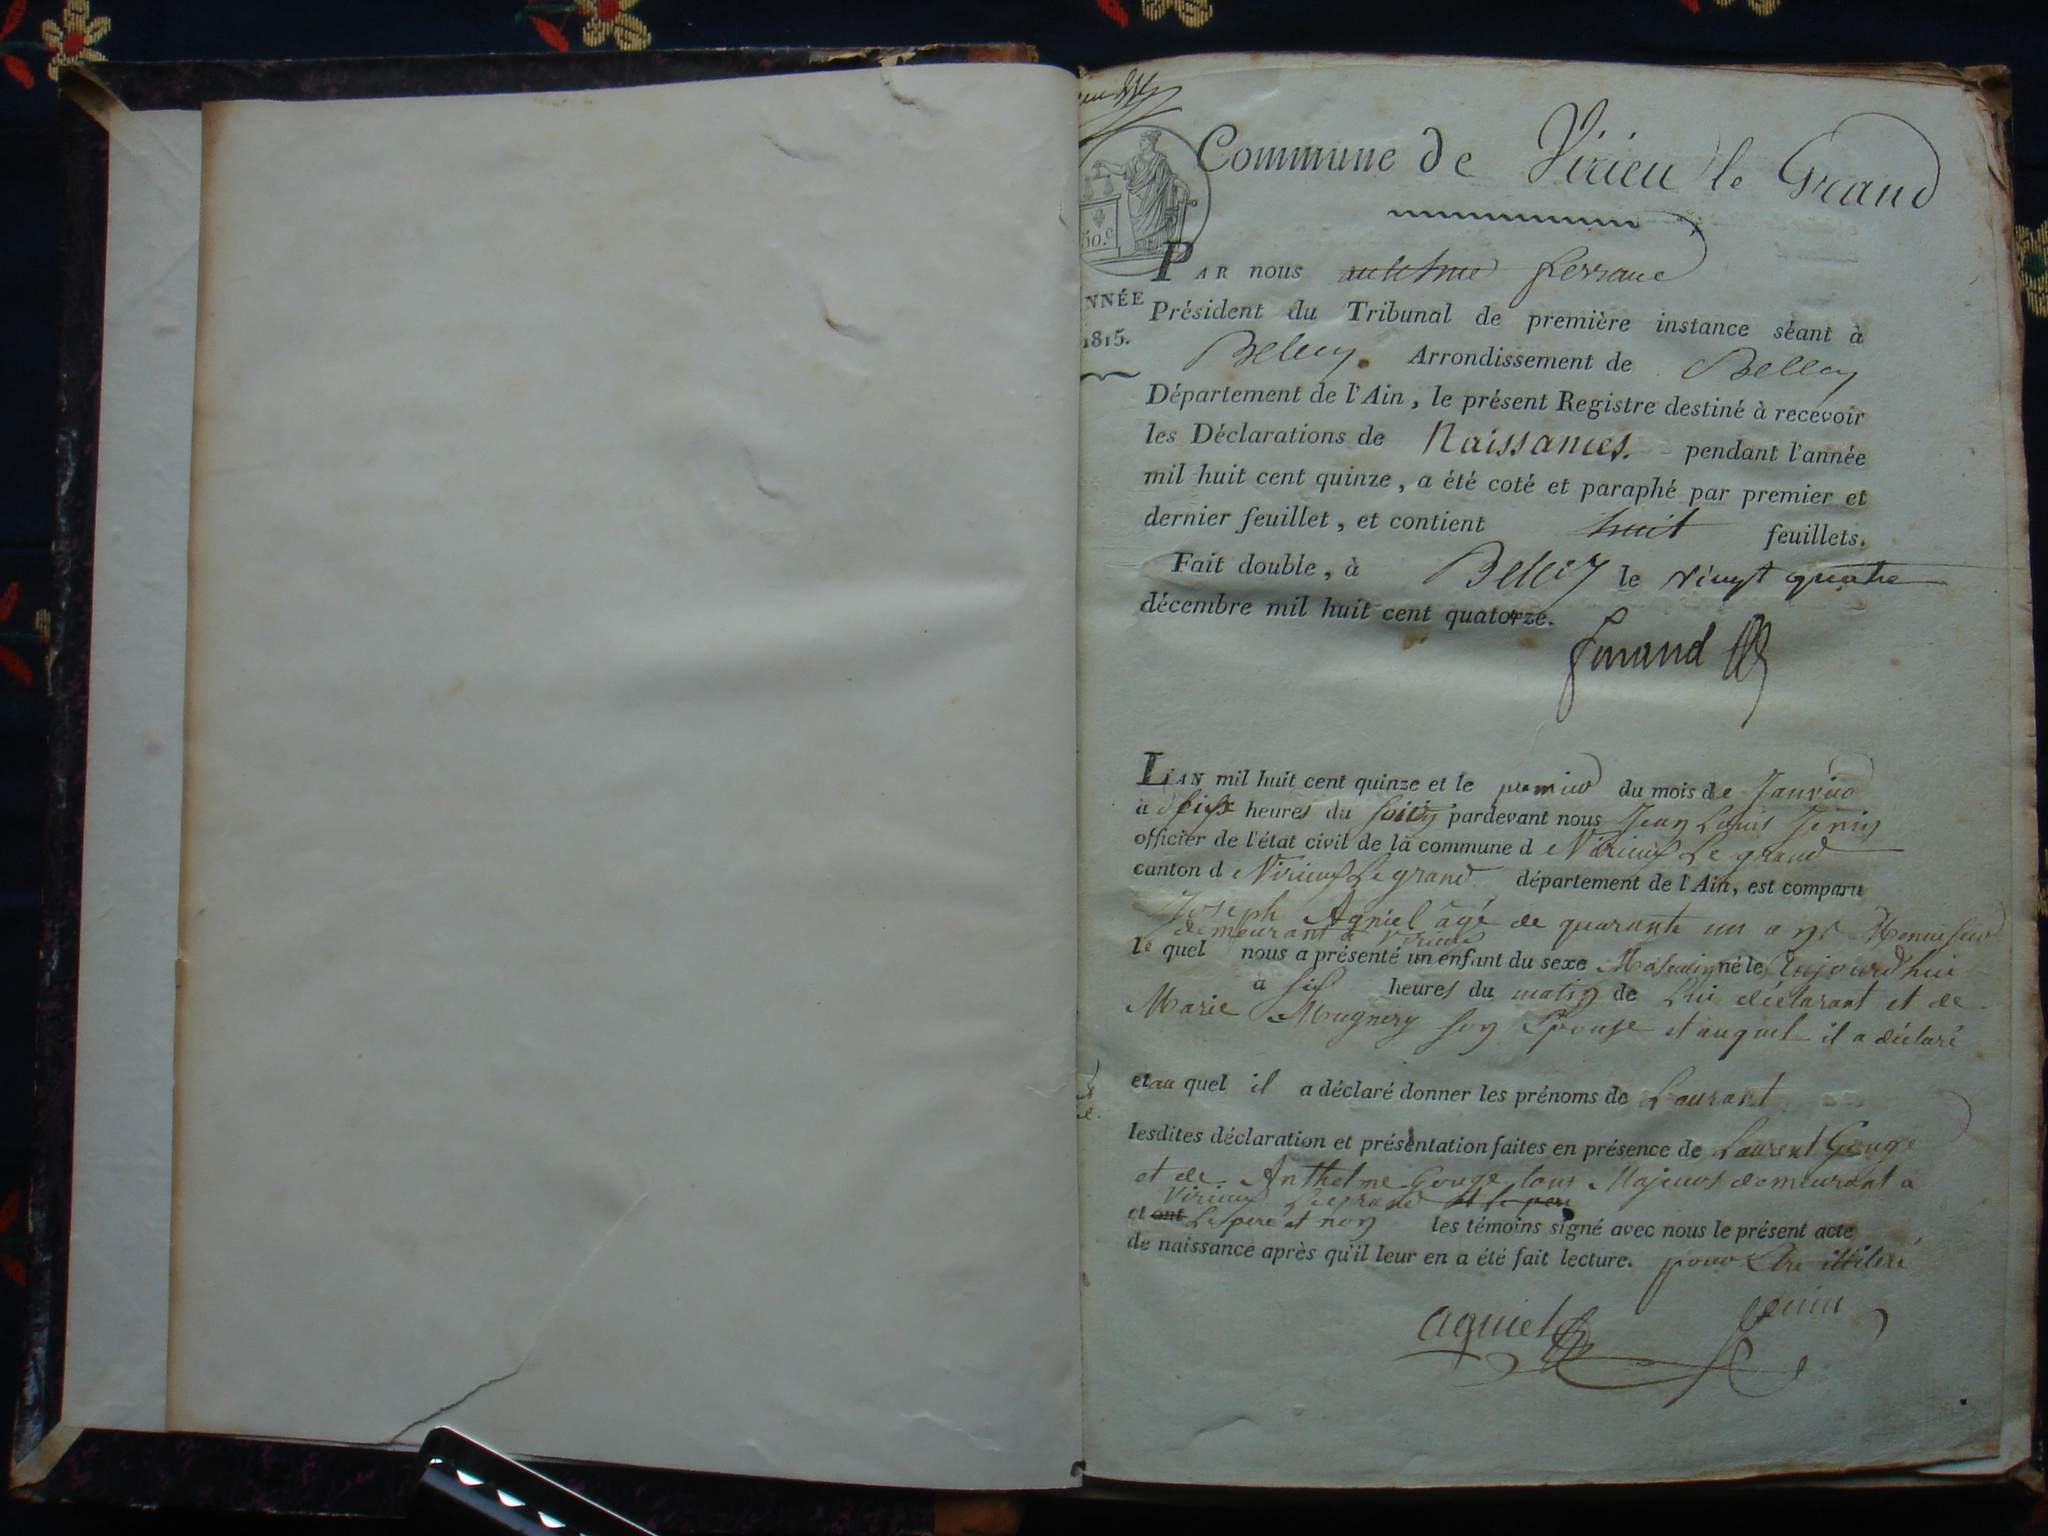 Commune de Virieu le Grand
50.c
NNÉE
1815.
PAR nous anthelme ferrand
Président du Tribunal de première instance séant à
Belley. Arrondissement de Belley
Département de l'Ain, le présent Registre destiné à recevoir
les Déclarations de Naissances. pendant l'année
mil huit cent quinze, a été coté et paraphé par premier et
dernier feuillet, et contient huit feuillets.
Fait double, à Belley le vingt quatre
décembre mil huit cent quatorze.
ferrand
L'AN mil huit cent quinze et le premier du mois de Janvier
à heures du soir pardevant nous Jean Louis
officier de l'état civil de la commune d Virieux Le grand
canton d Virieux Le grand département de l'Ain, est comparu
Joseph Agniel âgé de quarante un ans Menuisier
demeurant à Virieux
le quel nous a présenté un enfant du sexe Masculin né le Aujourd'hui
à six heures du matin de Lui déclarant et de
Marie Mugnery son Epouse et auquel il a déclaré
et au quel il a déclaré donner les prénoms de Laurant
lesdites déclaration et présentation faites en présence de Laurent Gouge
et de Anthelme Gouge tous Majeurs demeurant a
Virieux Le grand et le pere
et ont Le pere et non les témoins signé avec nous le présent acte
de naissance après qu'il leur en a été fait lecture. pour Etre illiteré
agniel